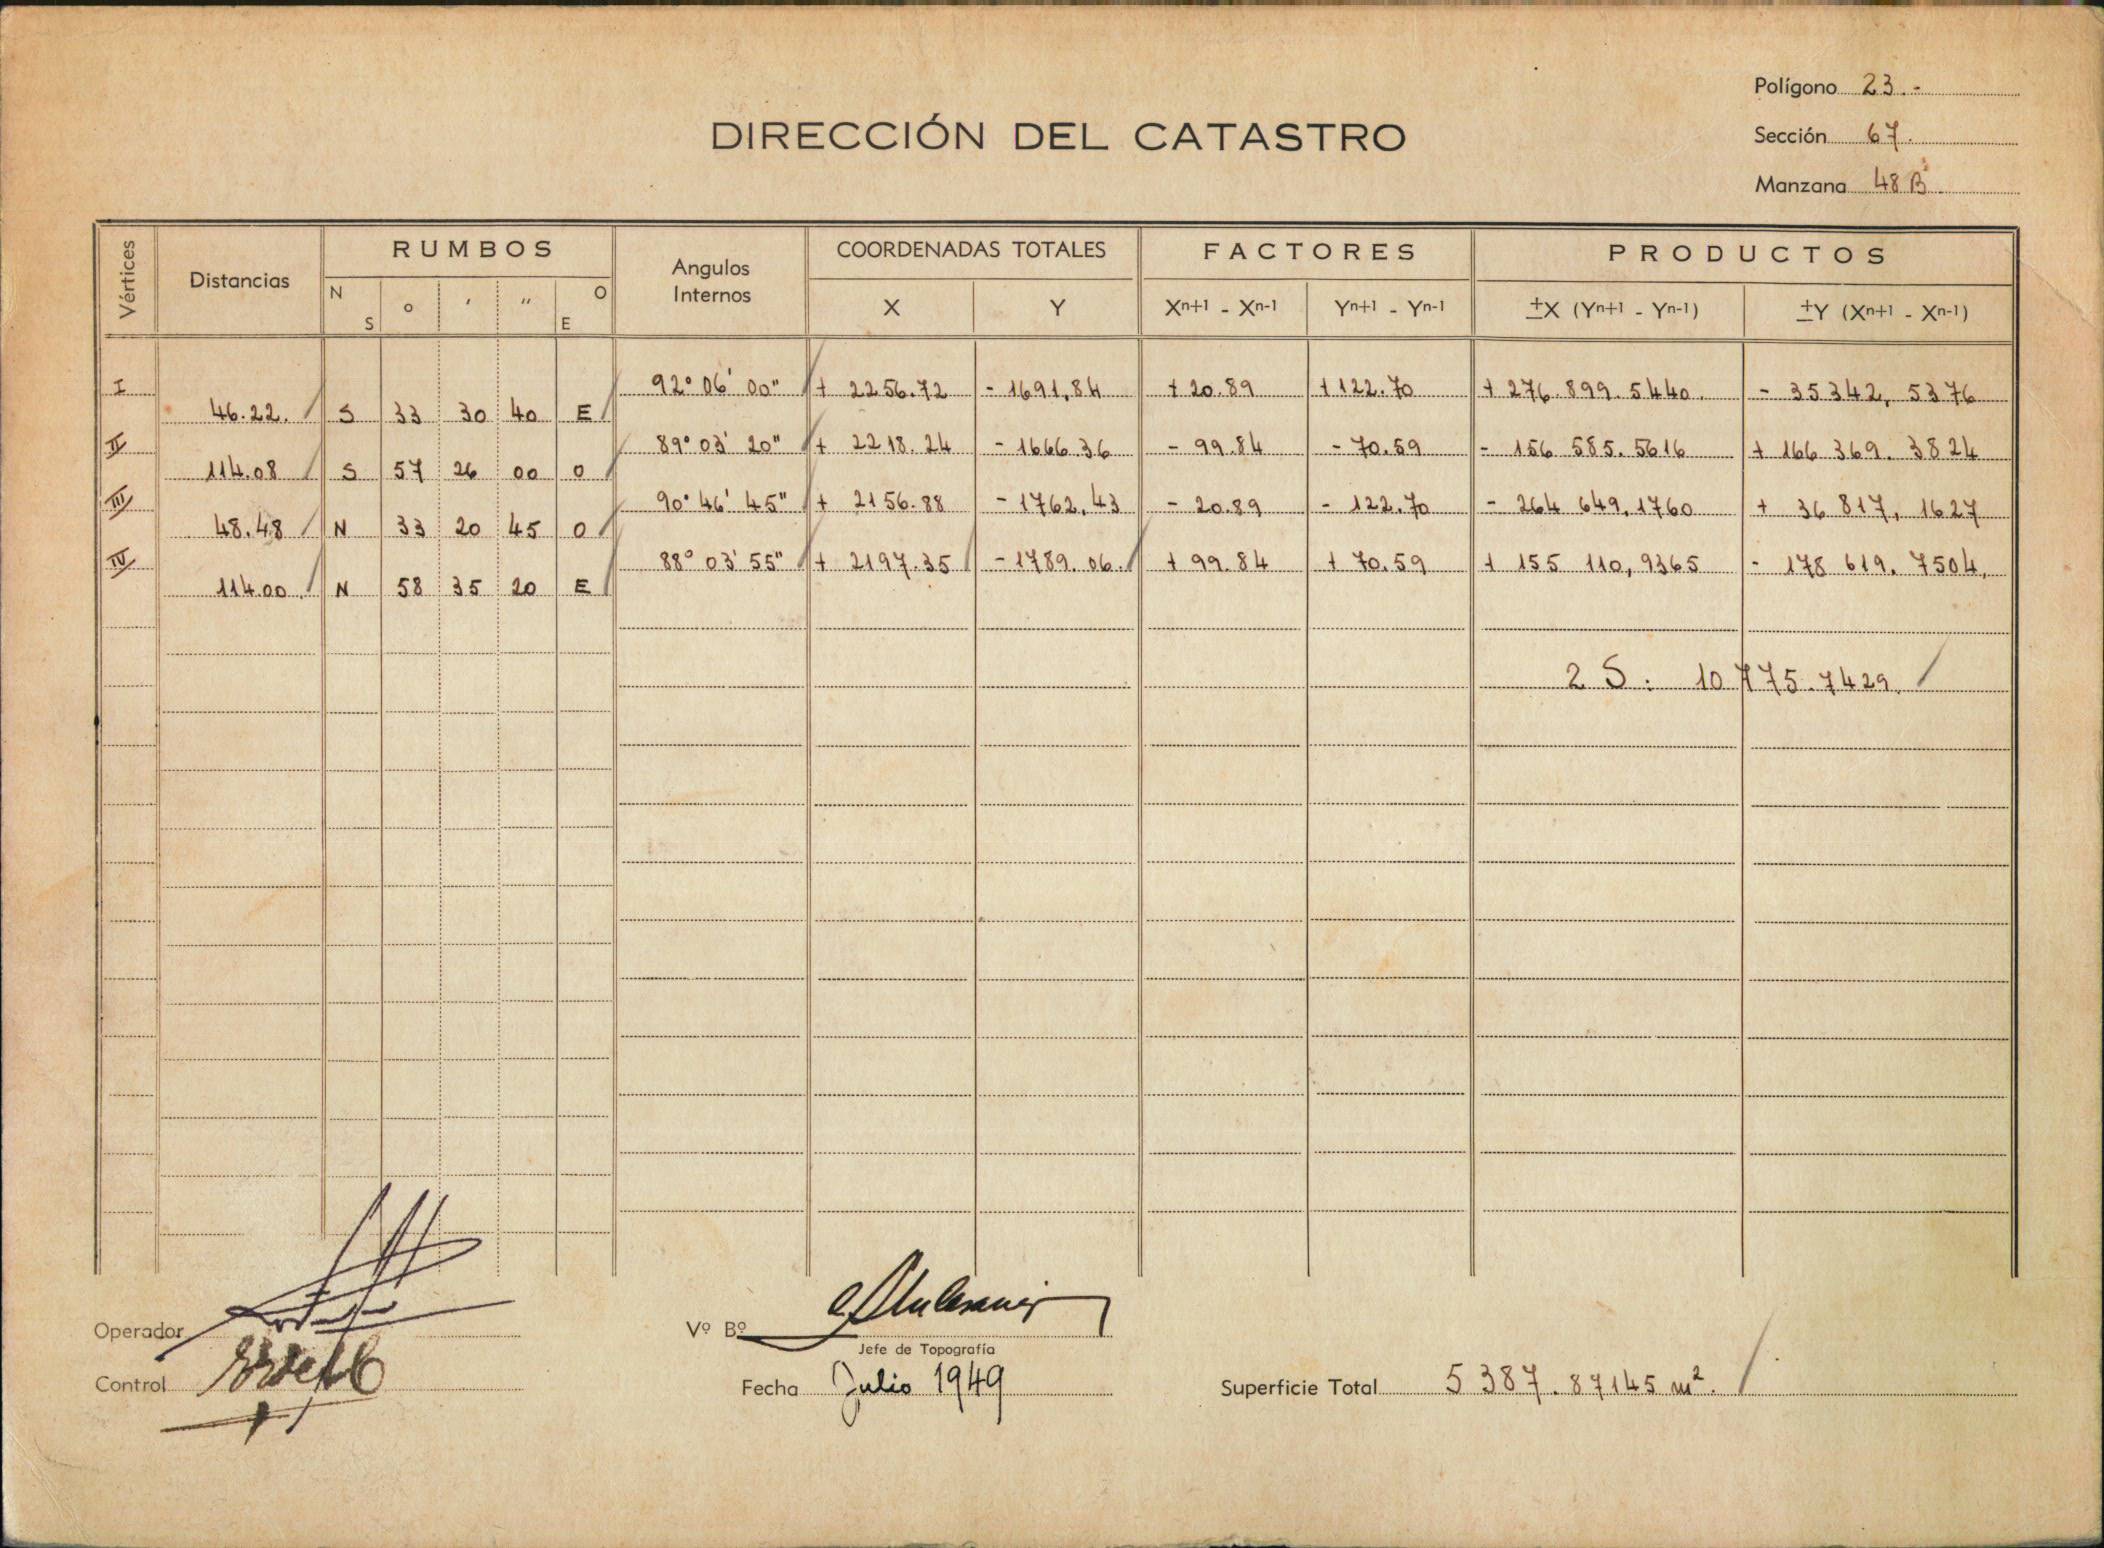 Polígono 23.-
DIRECCIÓN DEL CATASTRO
Sección 67.
Manzana 48 B.
Vértices Distancias RUMBOS Angulos Internos COORDENADAS TOTALES FACTORES PRODUCTOS
N S ° ′ ″ O E X Y Xn+1 - Xn-1 Yn+1 - Yn-1 ±X (Yn+1 - Yn-1) ±Y (Xn+1 - Xn-1)
I 92° 06' 00" + 2256.72 - 1691,84 + 20.89 + 122.70 + 276.899.5440. - 35342, 5376
46.22. S 33 30 40 E
II 89° 03' 20" + 2218.24 - 1666.36 - 99.84 - 70.59 - 156 585.5616 + 166 369. 3824
114.08 S 57 26 00 O
III 90° 46' 45" + 2156.88 - 1762,43 - 20.89 - 122.70 - 264 649,1760 + 36 817, 1627
48.48 N 33 20 45 O
IV 88° 03' 55" + 2197.35 - 1789.06. + 99.84 + 70.59 + 155 110,9365 - 178 619. 7504.
114.00. N 58 35 20 E
2 S: 10 775.7429.
Operador
Vº Bº
Jefe de Topografía
Control
Fecha Julio 1949
Superficie Total 5 387. 87145 m².